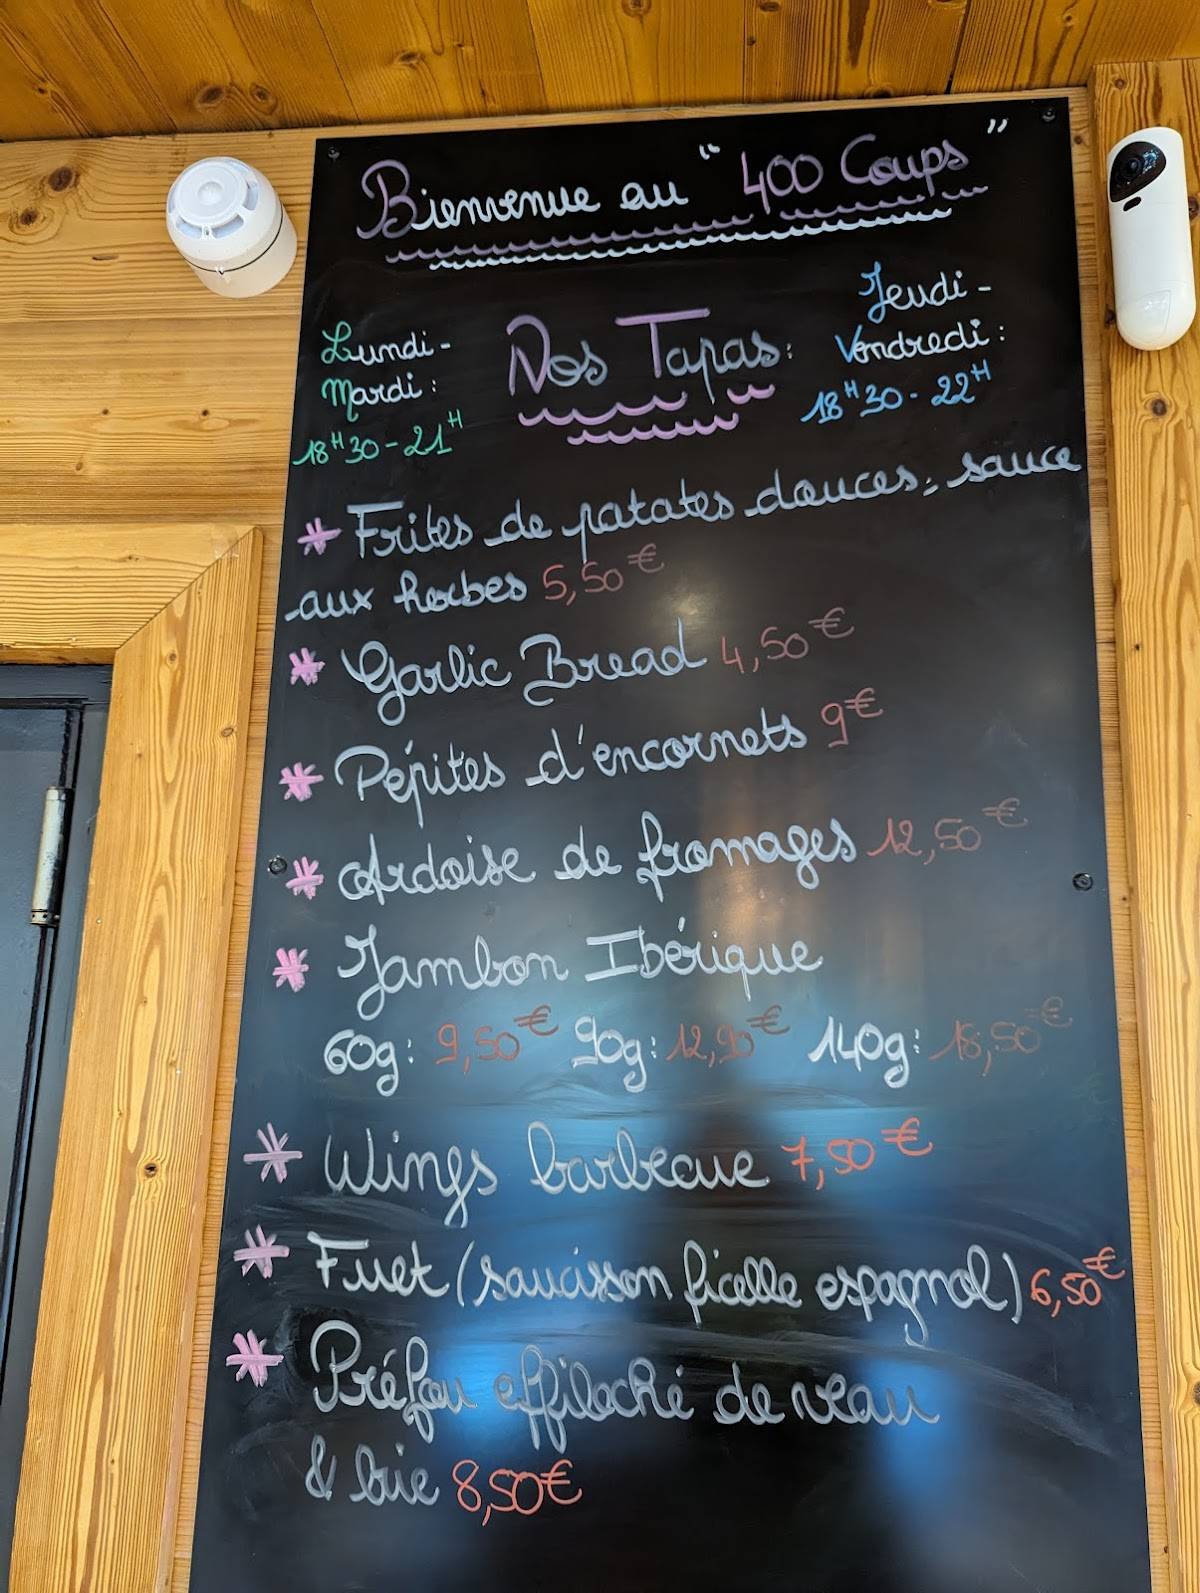 Bienvenue au "400 Coups"
Lundi -
Mardi :
18H30 - 21H
Nos Tapas :
Jeudi -
Vendredi :
18H30 - 22H
* Frites de patates douces, sauce
aux herbes 5,50€
* Garlic Bread 4,50€
* Pépites d'encornets 9€
* Ardoise de fromages 12,50€
* Jambon Ibérique
60g : 9,50€ 90g : 12,90€ 140g : 18,50€
* Wings barbecue 7,50€
* Fuet (saucisson ficelle espagnol) 6,50€
* Préfou effiloché de veau
& brie 8,50€